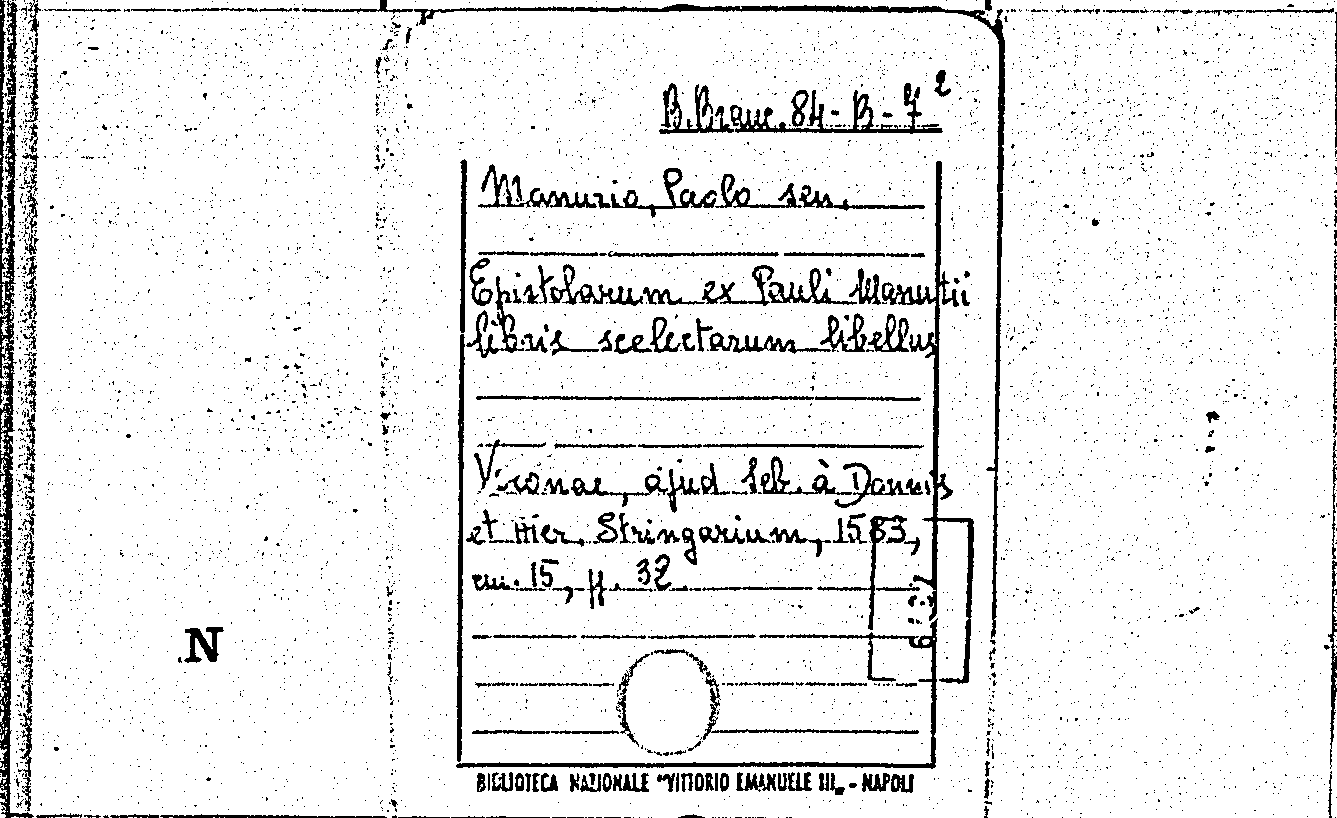 B.Branc. 84-B-7²
Manuzio, Paolo sen.
Epistolarum ex Pauli Manutii
libris scelectarum libellus
Veronae, apud Seb. à Donnis
et Hier. Stringarium, 1583,
cm. 15, ff. 32.
N
BIBLIOTECA NAZIONALE "VITTORIO EMANUELE III„ - NAPOLI